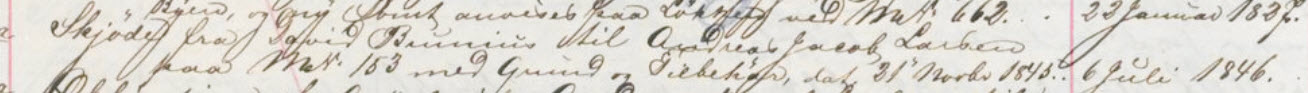 Byen, og ny Tomt anvises paa Løkken ved Mat. № 662. . . 23 Januar 1837.
Skjöde fra David Brunius til Andreas Jacob Larsen
paa Mat. № 153 med Grund og Tilbehør, dat. 31 Novbr 1845. 6 Juli 1846.